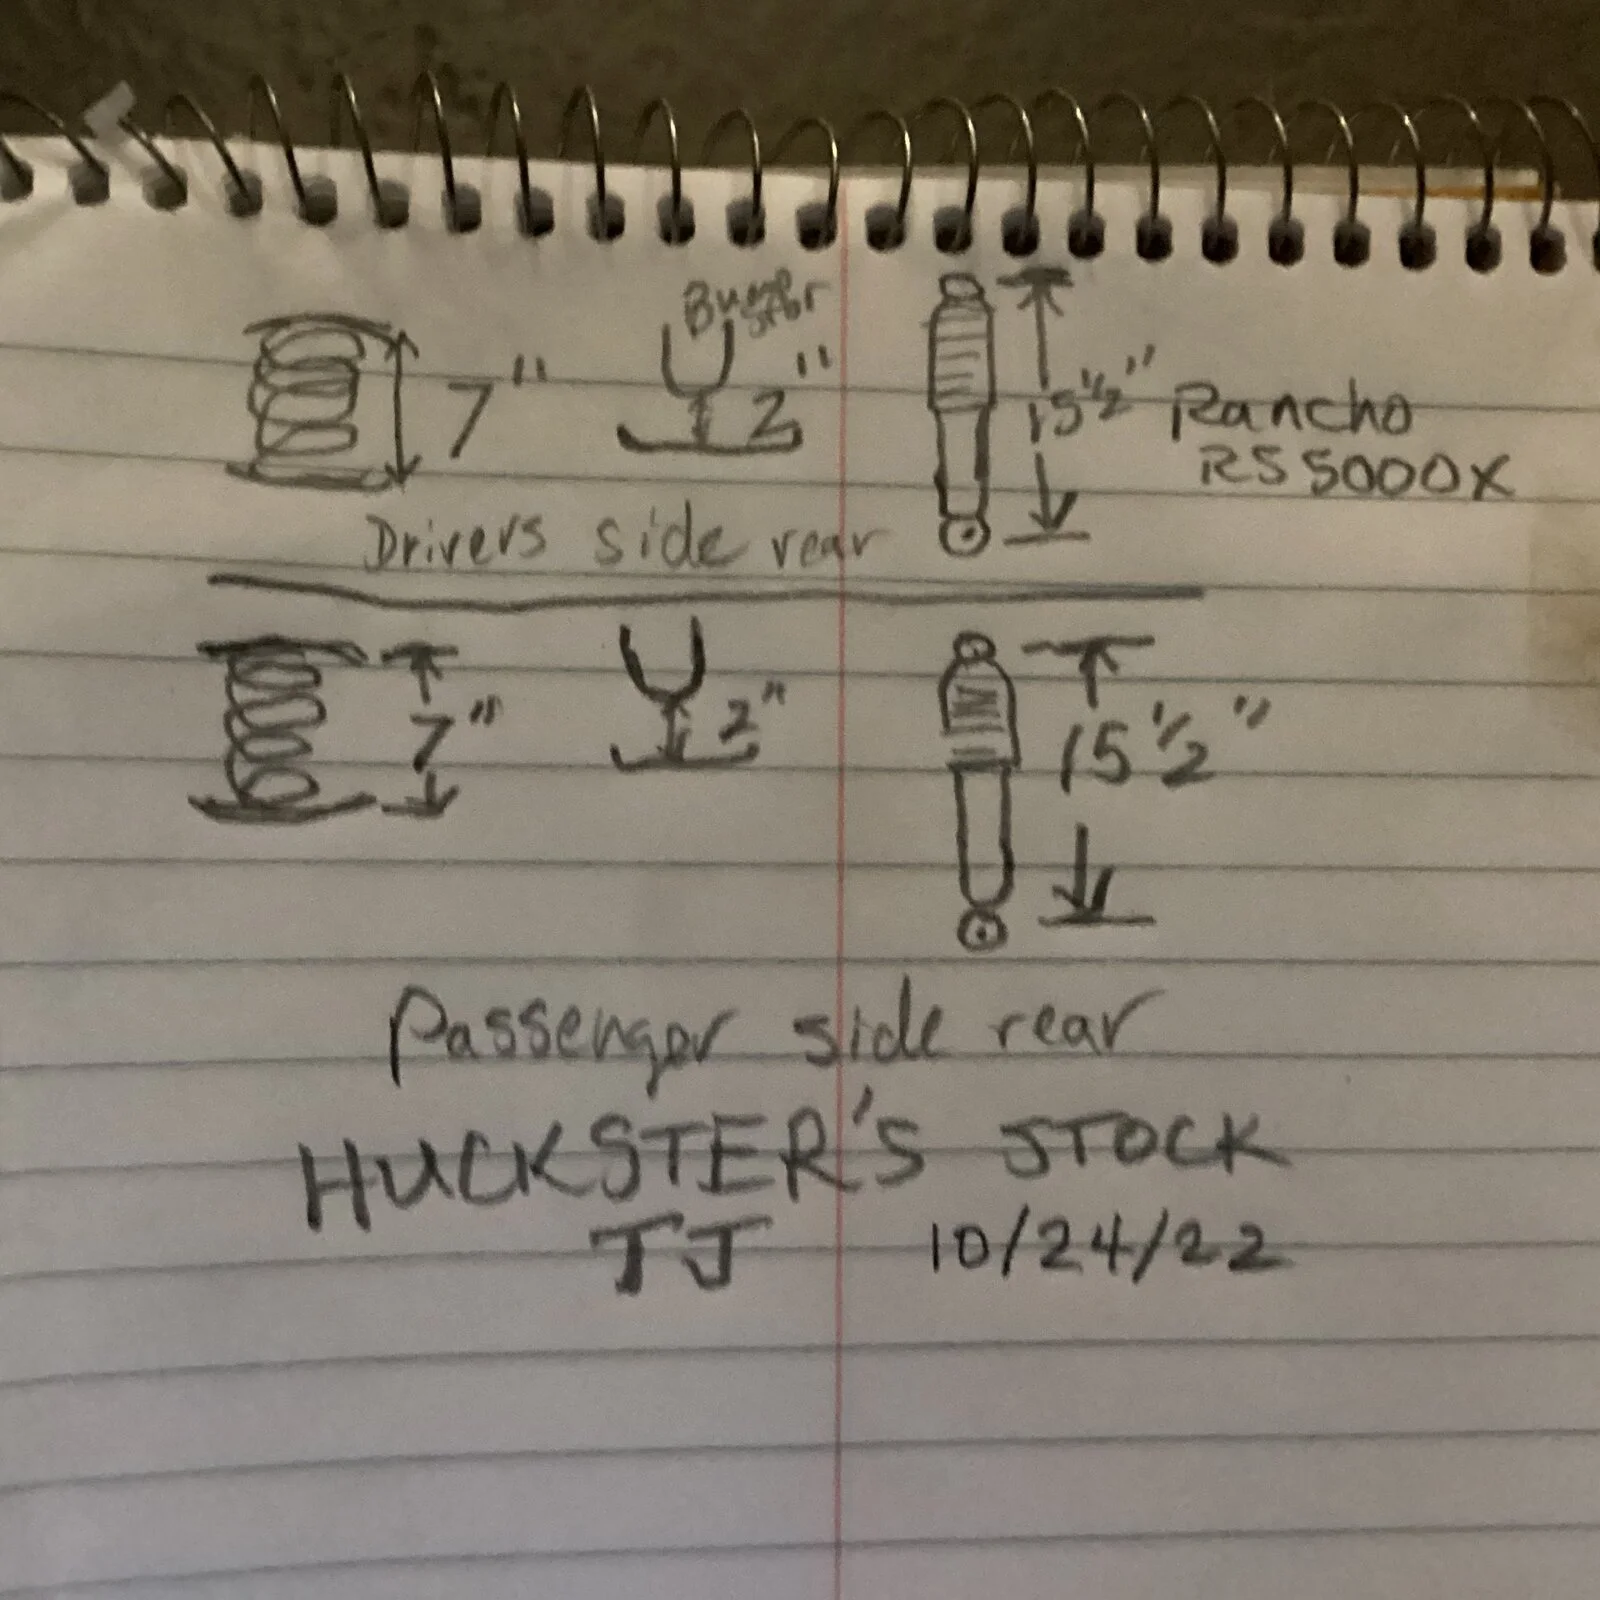 Bumper
stop
7"
2"
15 1/2"
Rancho
RS5000X
Drivers side rear
7"
2"
15 1/2"
Passenger side rear
HUCKSTER'S STOCK
TJ 10/24/22